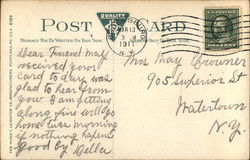 POST CARD
QUALITY
MAR 13
1911
N.Y.
MESSAGE MAY BE WRITTEN ON THIS SIDE
Dear Friend May
received your
card to day was
glad to hear from
you I am getting
along fine will go
home tues morning
if nothing happens
Good by Bella
Miss May Crowner
905 Superior St
Watertown
N.Y.